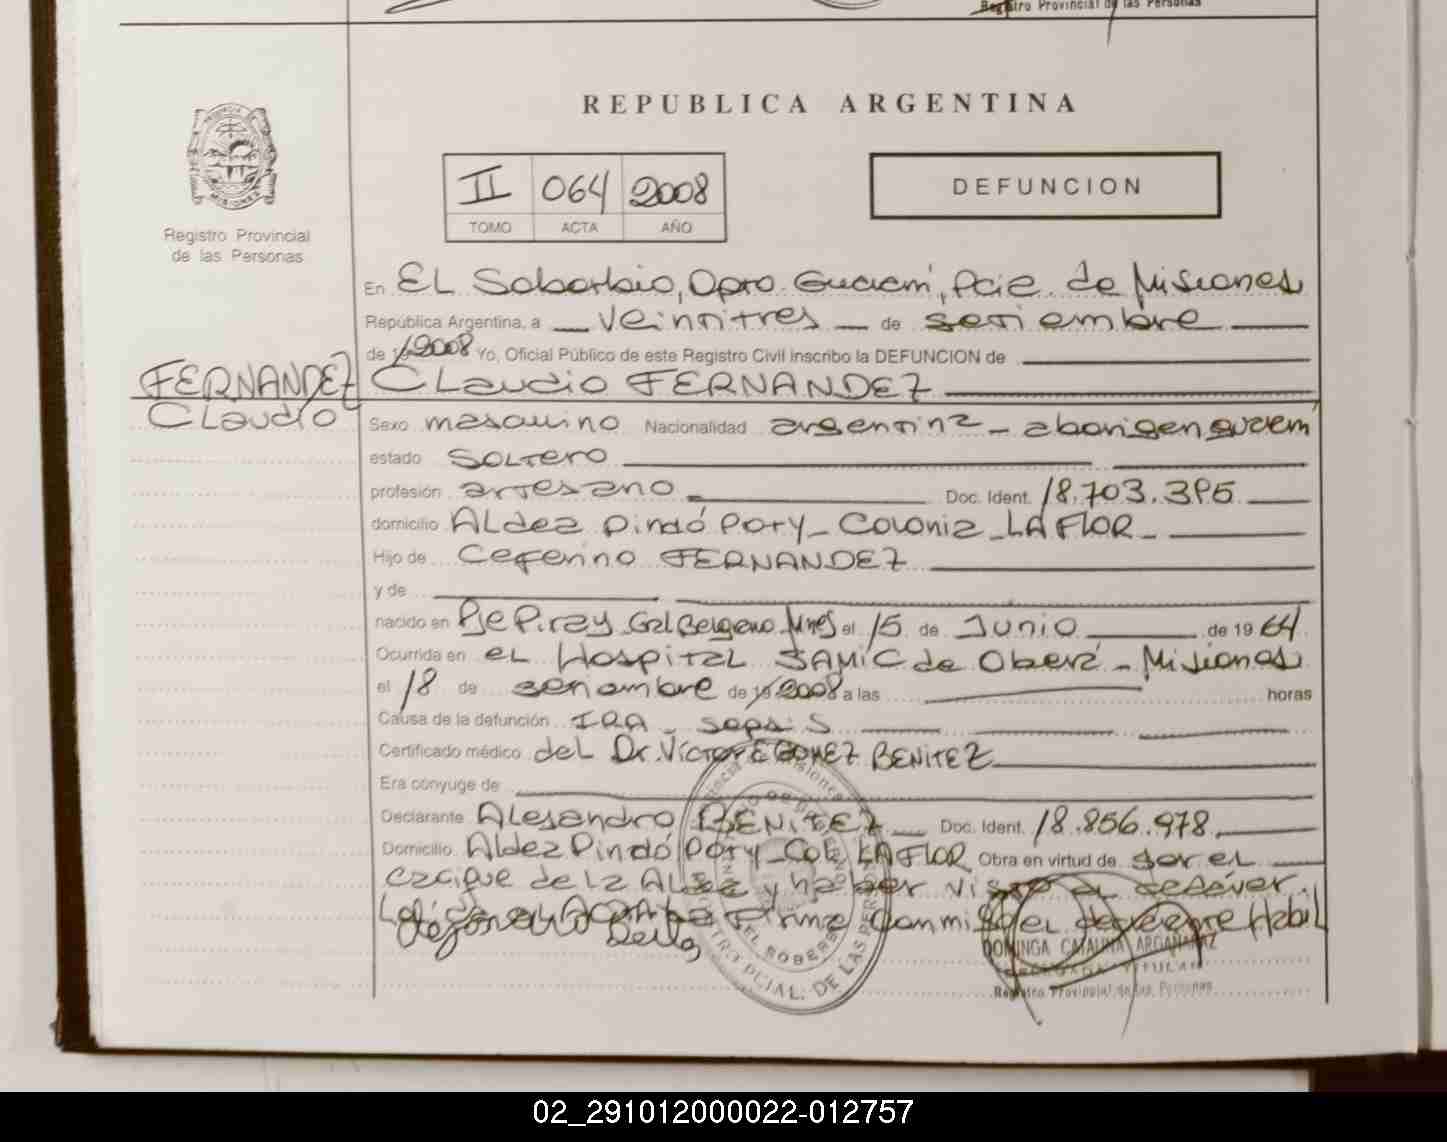 Registro Provincial de las Personas
REPUBLICA ARGENTINA
II 064 2008
TOMO ACTA AÑO
DEFUNCION
Registro Provincial
de las Personas
En EL Soberbio, Dpto. Guaraní, Pcia. de Misiones
República Argentina, a veintitres de setiembre
de 19 2008 Yo, Oficial Público de este Registro Civil inscribo la DEFUNCION de
FERNANDEZ Claudio FERNANDEZ
Claudio
Sexo masculino Nacionalidad argentina - aborigen guaraní
estado Soltero
profesión artesano Doc. Ident. 18.703.395
domicilio Aldea Pindó Poty - Colonia - LA FLOR -
Hijo de Ceferino FERNANDEZ
y de
nacido en Pje Piray Gral Belgrano Mnes el 15 de Junio de 19 64
Ocurrida en el Hospital SAMIC de Oberá - Misiones
el 18 de setiembre de 19 2008 a las horas
Causa de la defunción IRA - sepsis
Certificado médico del Dr. Victor E GOMEZ BENITEZ
Era cónyuge de
Declarante Alejandro BENITEZ Doc. Ident. 18.856.978
Domicilio Aldea Pindó Poty - Col. LA FLOR Obra en virtud de ser el
cacique de la Aldea y haber visto el cadáver.
Leída el ACTA la Firma conmigo el declarante Habil
DOMINGA CATALINA ARGAÑARAZ
DELEGADA TITULAR
Registro Provincial de las Personas
02_291012000022-012757